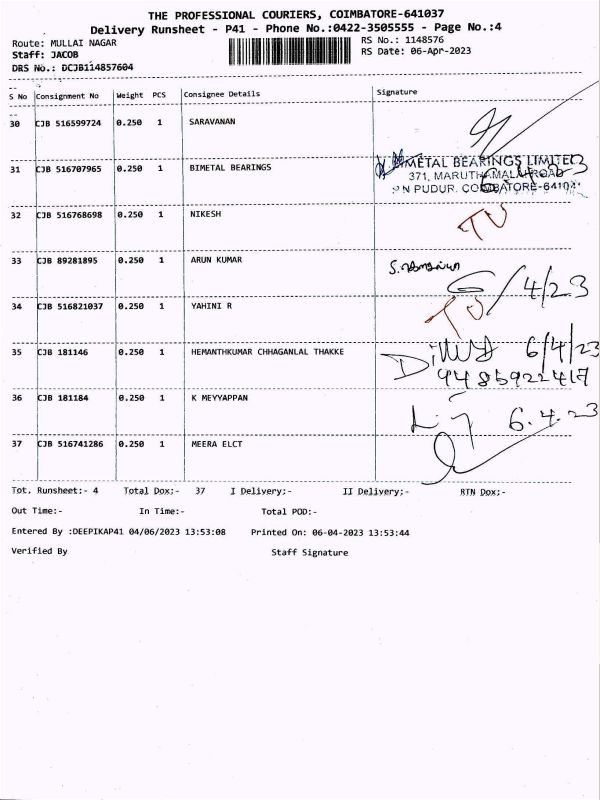 THE PROFESSIONAL COURIERS, COIMBATORE-641037
Delivery Runsheet - P41 - Phone No.:0422-3505555 - Page No.:4
Route: MULLAI NAGAR RS No.: 1148576
Staff: JACOB RS Date: 06-Apr-2023
DRS No.: DCJB114857604
S No Consignment No Weight PCS Consignee Details Signature
30 CJB 516599724 0.250 1 SARAVANAN
31 CJB 516707965 0.250 1 BIMETAL BEARINGS
BIMETAL BEARINGS LIMITED
371, MARUTHAMALAI ROAD
P N PUDUR, COIMBATORE-64104
32 CJB 516768698 0.250 1 NIKESH TU
33 CJB 89281895 0.250 1 ARUN KUMAR
6/4/23
34 CJB 516821037 0.250 1 YAHINI R TU
35 CJB 181146 0.250 1 HEMANTHKUMAR CHHAGANLAL THAKKE 6/4/23
9485922417
36 CJB 181184 0.250 1 K MEYYAPPAN 6.4.23
37 CJB 516741286 0.250 1 MEERA ELCT
Tot. Runsheet:- 4 Total Dox:- 37 I Delivery:- II Delivery:- RTN Dox:-
Out Time:- In Time:- Total POD:-
Entered By :DEEPIKAP41 04/06/2023 13:53:08 Printed On: 06-04-2023 13:53:44
Verified By Staff Signature